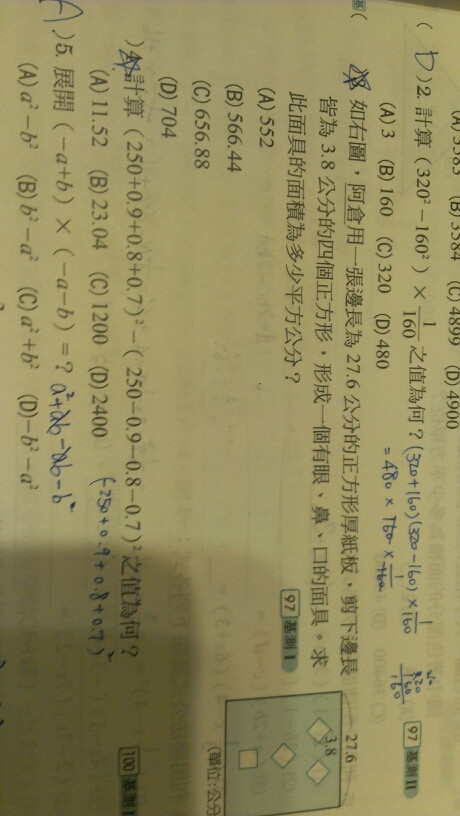 (A) 3583 (B) 3584 (C) 4899 (D) 4900
( D )2. 計算(320²-160²)×1/160之值為何?(320+160)(320-160)×1/160
(A) 3 (B) 160 (C) 320 (D) 480
=480×160×1/160
320
160
160
97 基測 II
基 (
3. 如右圖,阿倉用一張邊長為 27.6 公分的正方形厚紙板,剪下邊長
皆為 3.8 公分的四個正方形,形成一個有眼、鼻、口的面具。求
此面具的面積為多少平方公分?
97 基測 I
(A) 552
(B) 566.44
(C) 656.88
(D) 704
27.6
3.8
(單位:公分
)4. 計算(250+0.9+0.8+0.7)²-(250-0.9-0.8-0.7)²之值為何?
(A) 11.52 (B) 23.04 (C) 1200 (D) 2400
(250+0.9+0.8+0.7)²
100 基測 I
A )5. 展開(-a+b)×(-a-b)=? a²+ab-ab-b²
(A) a²-b² (B) b²-a² (C) a²+b² (D) -b²-a²